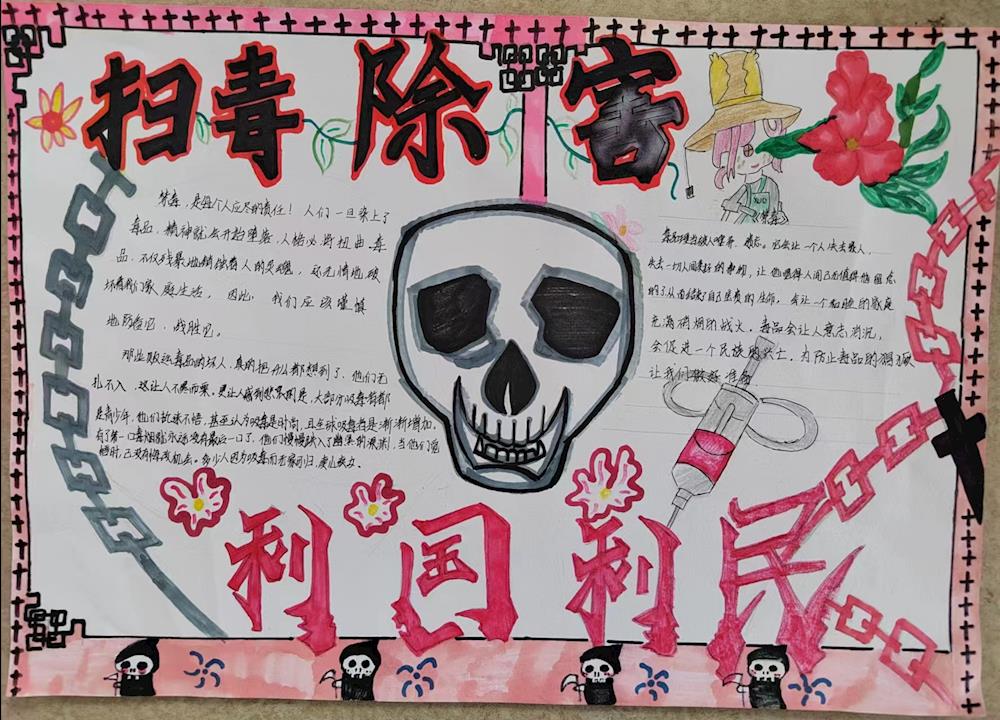 扫毒除害
禁毒，是每个人应尽的责任！人们一旦染上了
毒品，精神就会开始堕落，人格必将扭曲。毒
品，不仅残暴地销蚀着人的灵魂，还无情地破
坏着我们家庭生活，因此，我们应该谨慎
地防着它，战胜它。
那些贩运毒品的坏人真的把什么都想到了，他们无
孔不入，这让人不寒而栗。更让人感到悲哀的是，大部分吸毒者都
是青少年，他们执迷不悟，甚至认为吸毒是时尚，且全球吸毒者是渐渐增加，
有了第一口毒烟就永远没有最后一口了，他们慢慢跌入了幽黑的深渊，当他们觉
悟时，已没有悔改机会。多少人因为吸毒而有家可归，妻儿
禁毒
毒品 人 。它会让一个人失去亲人，
失去一切人间美好的 ，让他觉得人间已无值得他留恋
的了从而结束了自己宝贵的生命，会让一个和睦的家庭
充满硝烟的战火。毒品会让人意志消沉，
会促进一个民族的 。为防止毒品的
让我们做好准备
利国利民